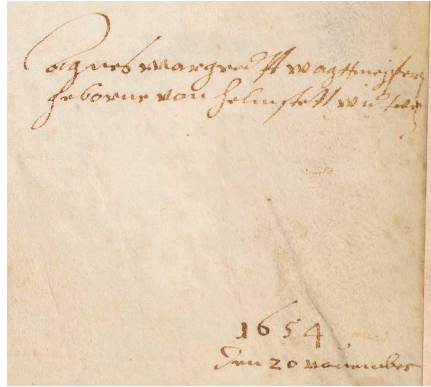 Agnes margredtt wagttmeisterin
geborne von helmstett wittwe
1654
den 20 nouember